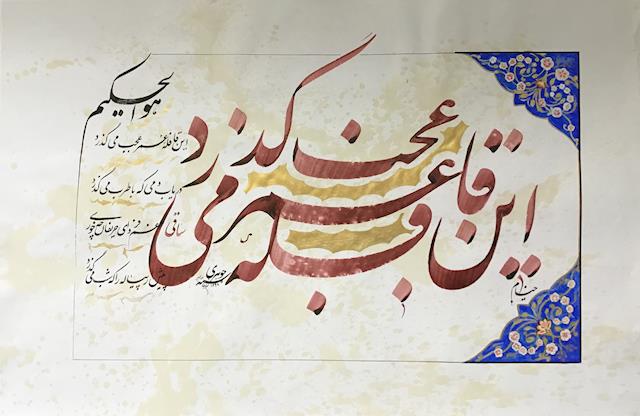 هوالحکیم
این قافله عمر عجب می گذرد
این قافله عمر عجب می گذرد
دریاب دمی که با طرب می گذرد
ساقی غم فردای حریفان چه خوری
پیش آر پیاله را که شب می گذرد
خیام